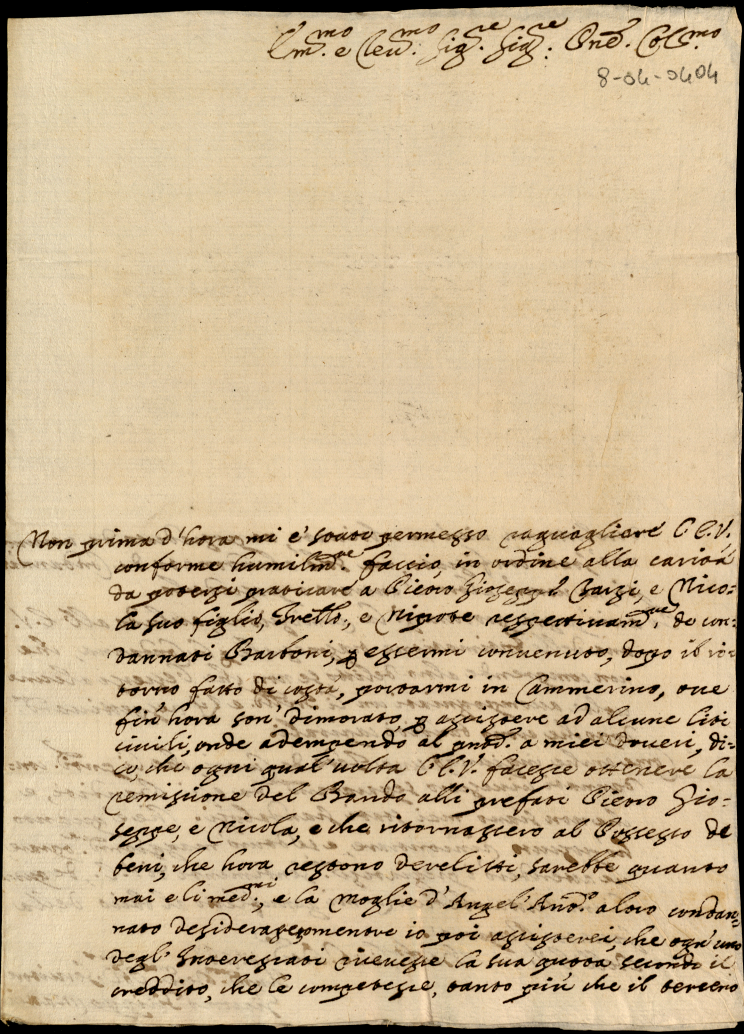 Em.mo e Rev.mo Sig.re Sig.re Pne. Col.mo
8-04-0404
Non prima d'hora mi è stato permesso raguagliare l'E.V.
conforme humilm.te faccio, in ordine alla carità
da potersi praticare a Pietro Gioseppe Barzi, e Nico=
la suo figlio, frello, e Nipote respettivam.te, de con=
dannati Barboni, p essermi convenuto, dopo il ri=
torno fatto di costà, portarmi in Cammerino, ove
fin' hora son' dimorato, p assistere ad alcune liti
civili, onde adempendo al a miei doveri, di=
co, che ogni qual' volta l'E.V. facesse ottenere la
remissione del Bando alli prefati Pietro Gio=
seppe, e Nicola, e che ritornassero al Possesso de
beni, che hora restono derelitti, sarebbe quanto
mai e li med.mi, e la moglie d'Angel' Ant.o altro condan=
nato desiderasse, mentre io poi assisterei, che ogn' uno
degl' Interessati ricevesse la sua quota secondo il
creddito, che le competesse, tanto più che il terreno